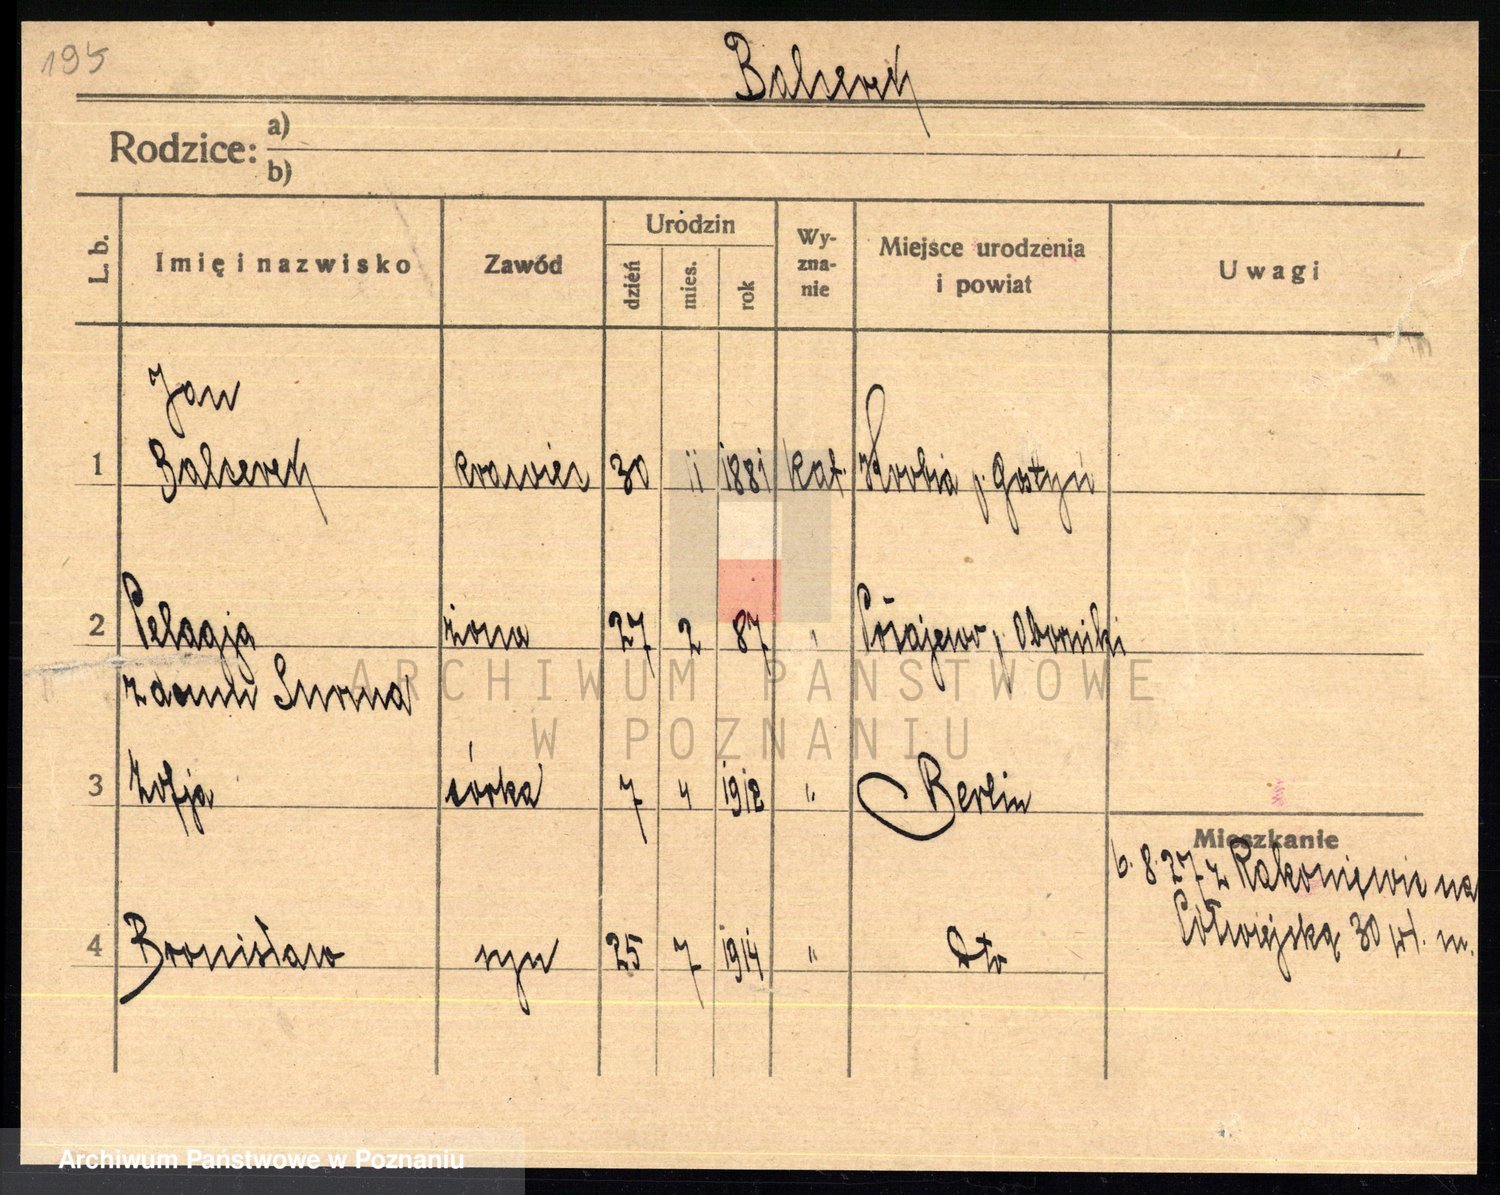 195
Balcerek
Rodzice: a)
b)
L. b.
Imię i nazwisko
Zawód
Urodzin
dzień
mies.
rok
Wy-
zna-
nie
Miejsce urodzenia
i powiat
Uwagi
Jan
1 Balcerek krawiec 30 11 1881 kat. Krobia p. Gostyń
2 Pelagja żona 27 2 87 " Pożajewo p. Oborniki
z domu
3 Zofja córka 7 4 1912 " Berlin
Mieszkanie
6.8.27 z Rakoniewic na
30 m.
4 Bronisław syn 25 7 1914 " dto
ARCHIWUM PAŃSTWOWE
W POZNANIU
Archiwum Państwowe w Poznaniu